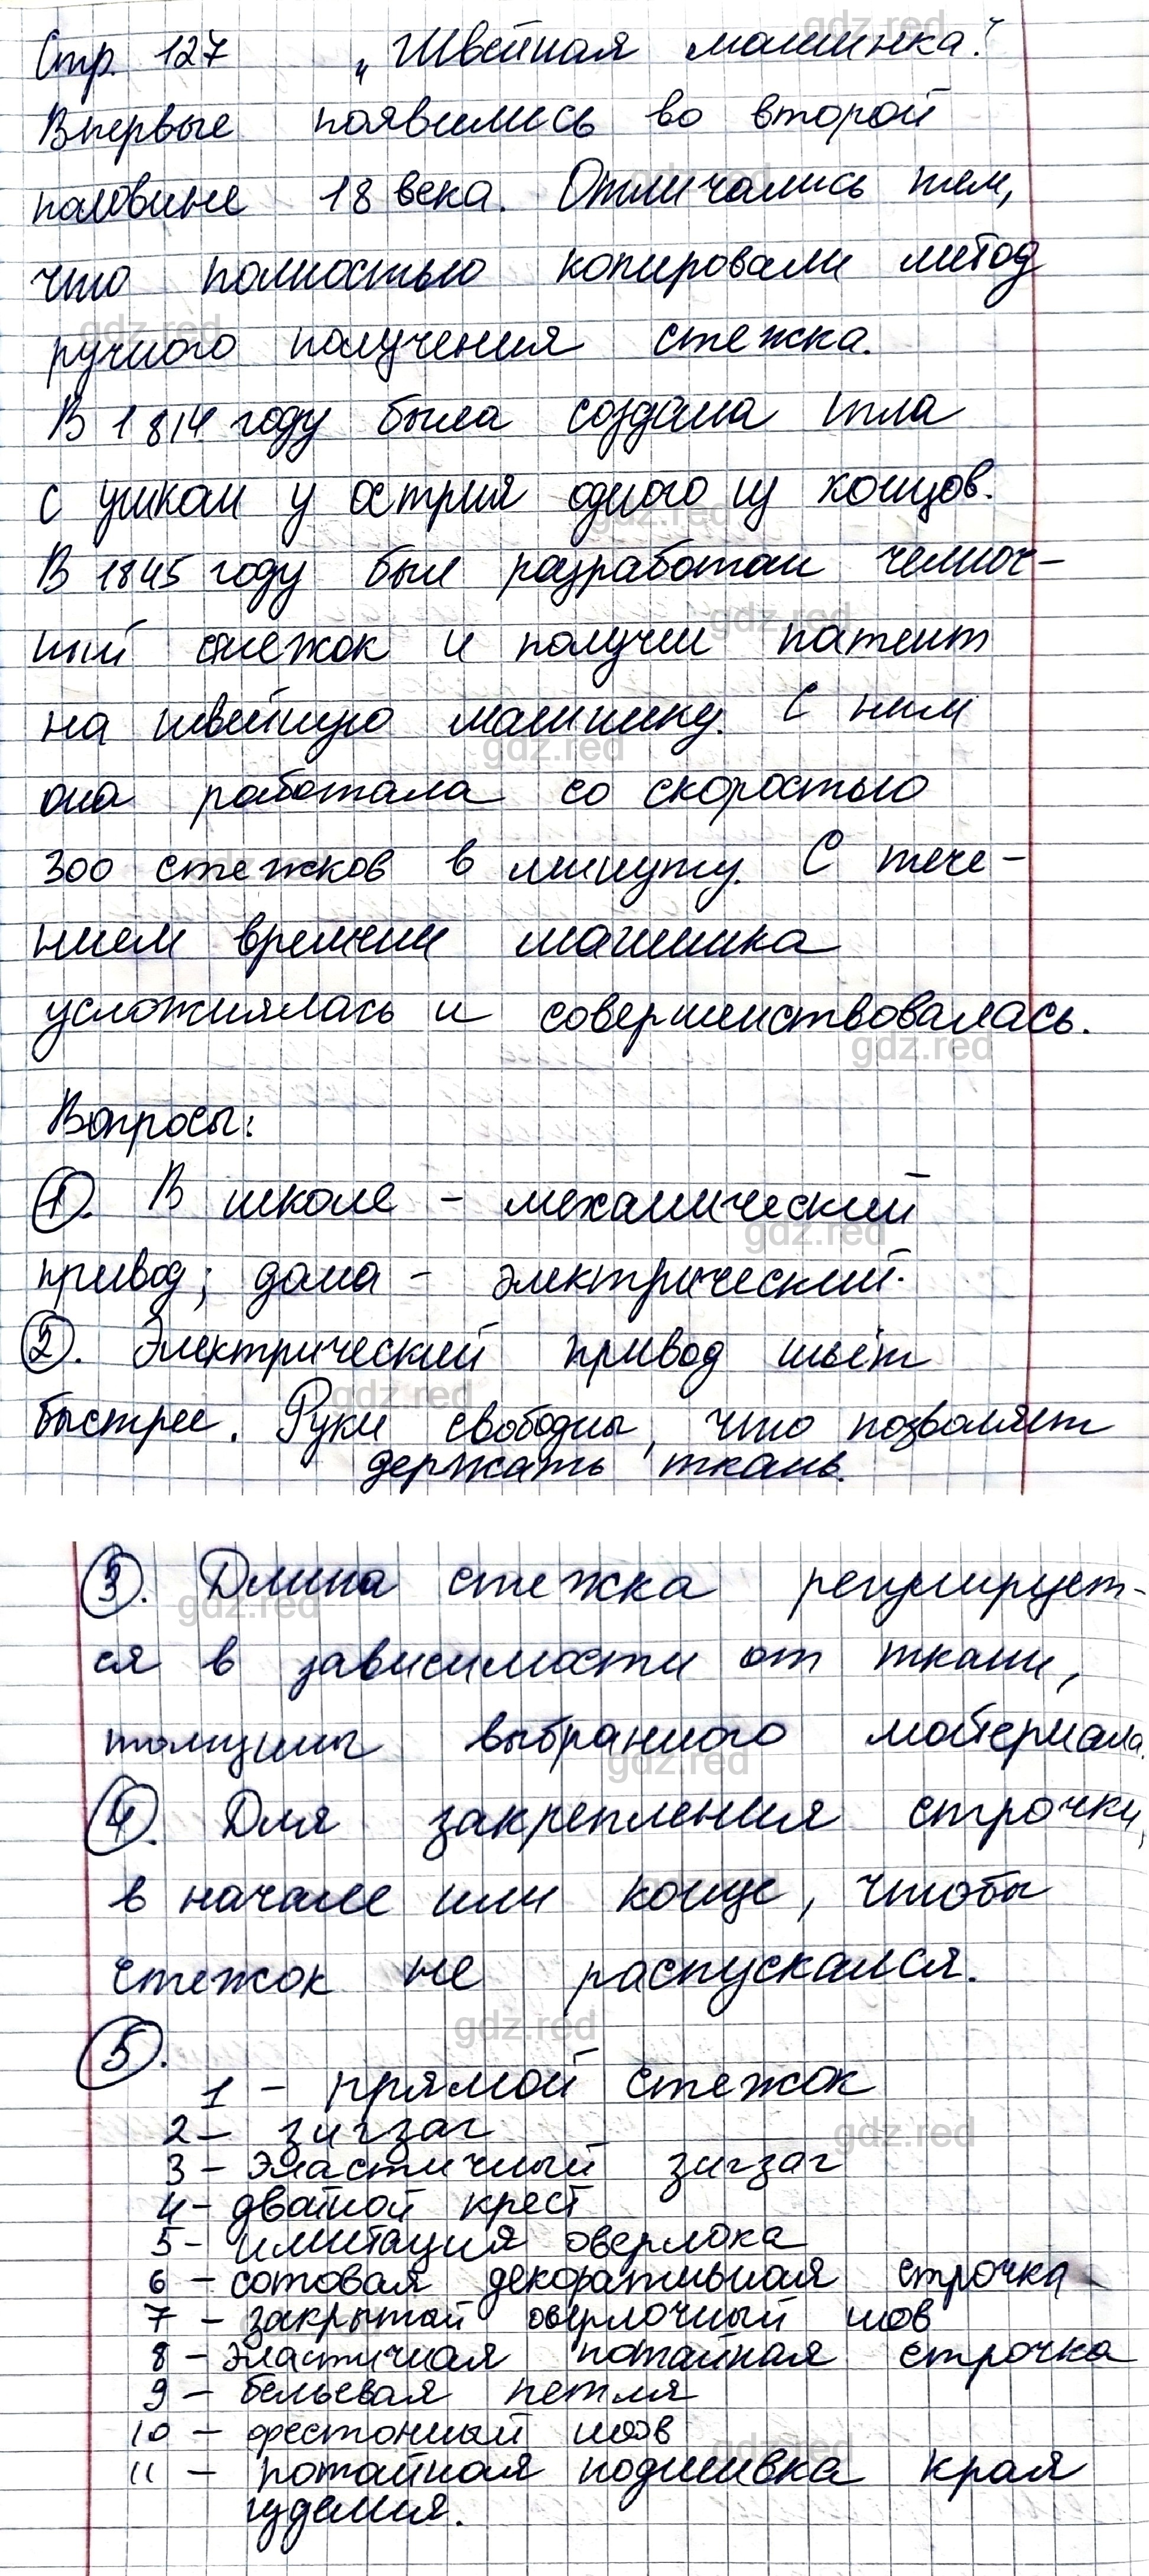 Стр. 127 „Швейная машинка."
Впервые появились во второй
половине 18 века. Отличались тем,
что полностью копировали метод
ручного получения стежка.
В 1814 году была создана игла
с ушком у острия одного из концов.
В 1845 году был разработан челноч-
ный стежок и получил патент
на швейную машинку. С ним
она работала со скоростью
300 стежков в минуту. С тече-
нием времени машинка
усложнялась и совершенствовалась.
Вопросы:
1. В школе - механический
привод; дома - электрический.
2. Электрический привод шьёт
быстрее. Руки свободны, что позволяет
держать ткань.
3. Длина стежка регулирует-
ся в зависимости от ткани,
толщины выбранного материала.
4. Для закрепления строчки,
в начале или конце, чтобы
стежок не распускался.
5.
1 - прямой стежок
2 - зигзаг
3 - эластичный зигзаг
4 - двойной крест
5 - имитация оверлока
6 - сотовая декоративная строчка
7 - закрытый оверлочный шов
8 - эластичная потайная строчка
9 - бельевая петля
10 - фестонный шов
11 - потайная подшивка края
изделия.
gdz.red